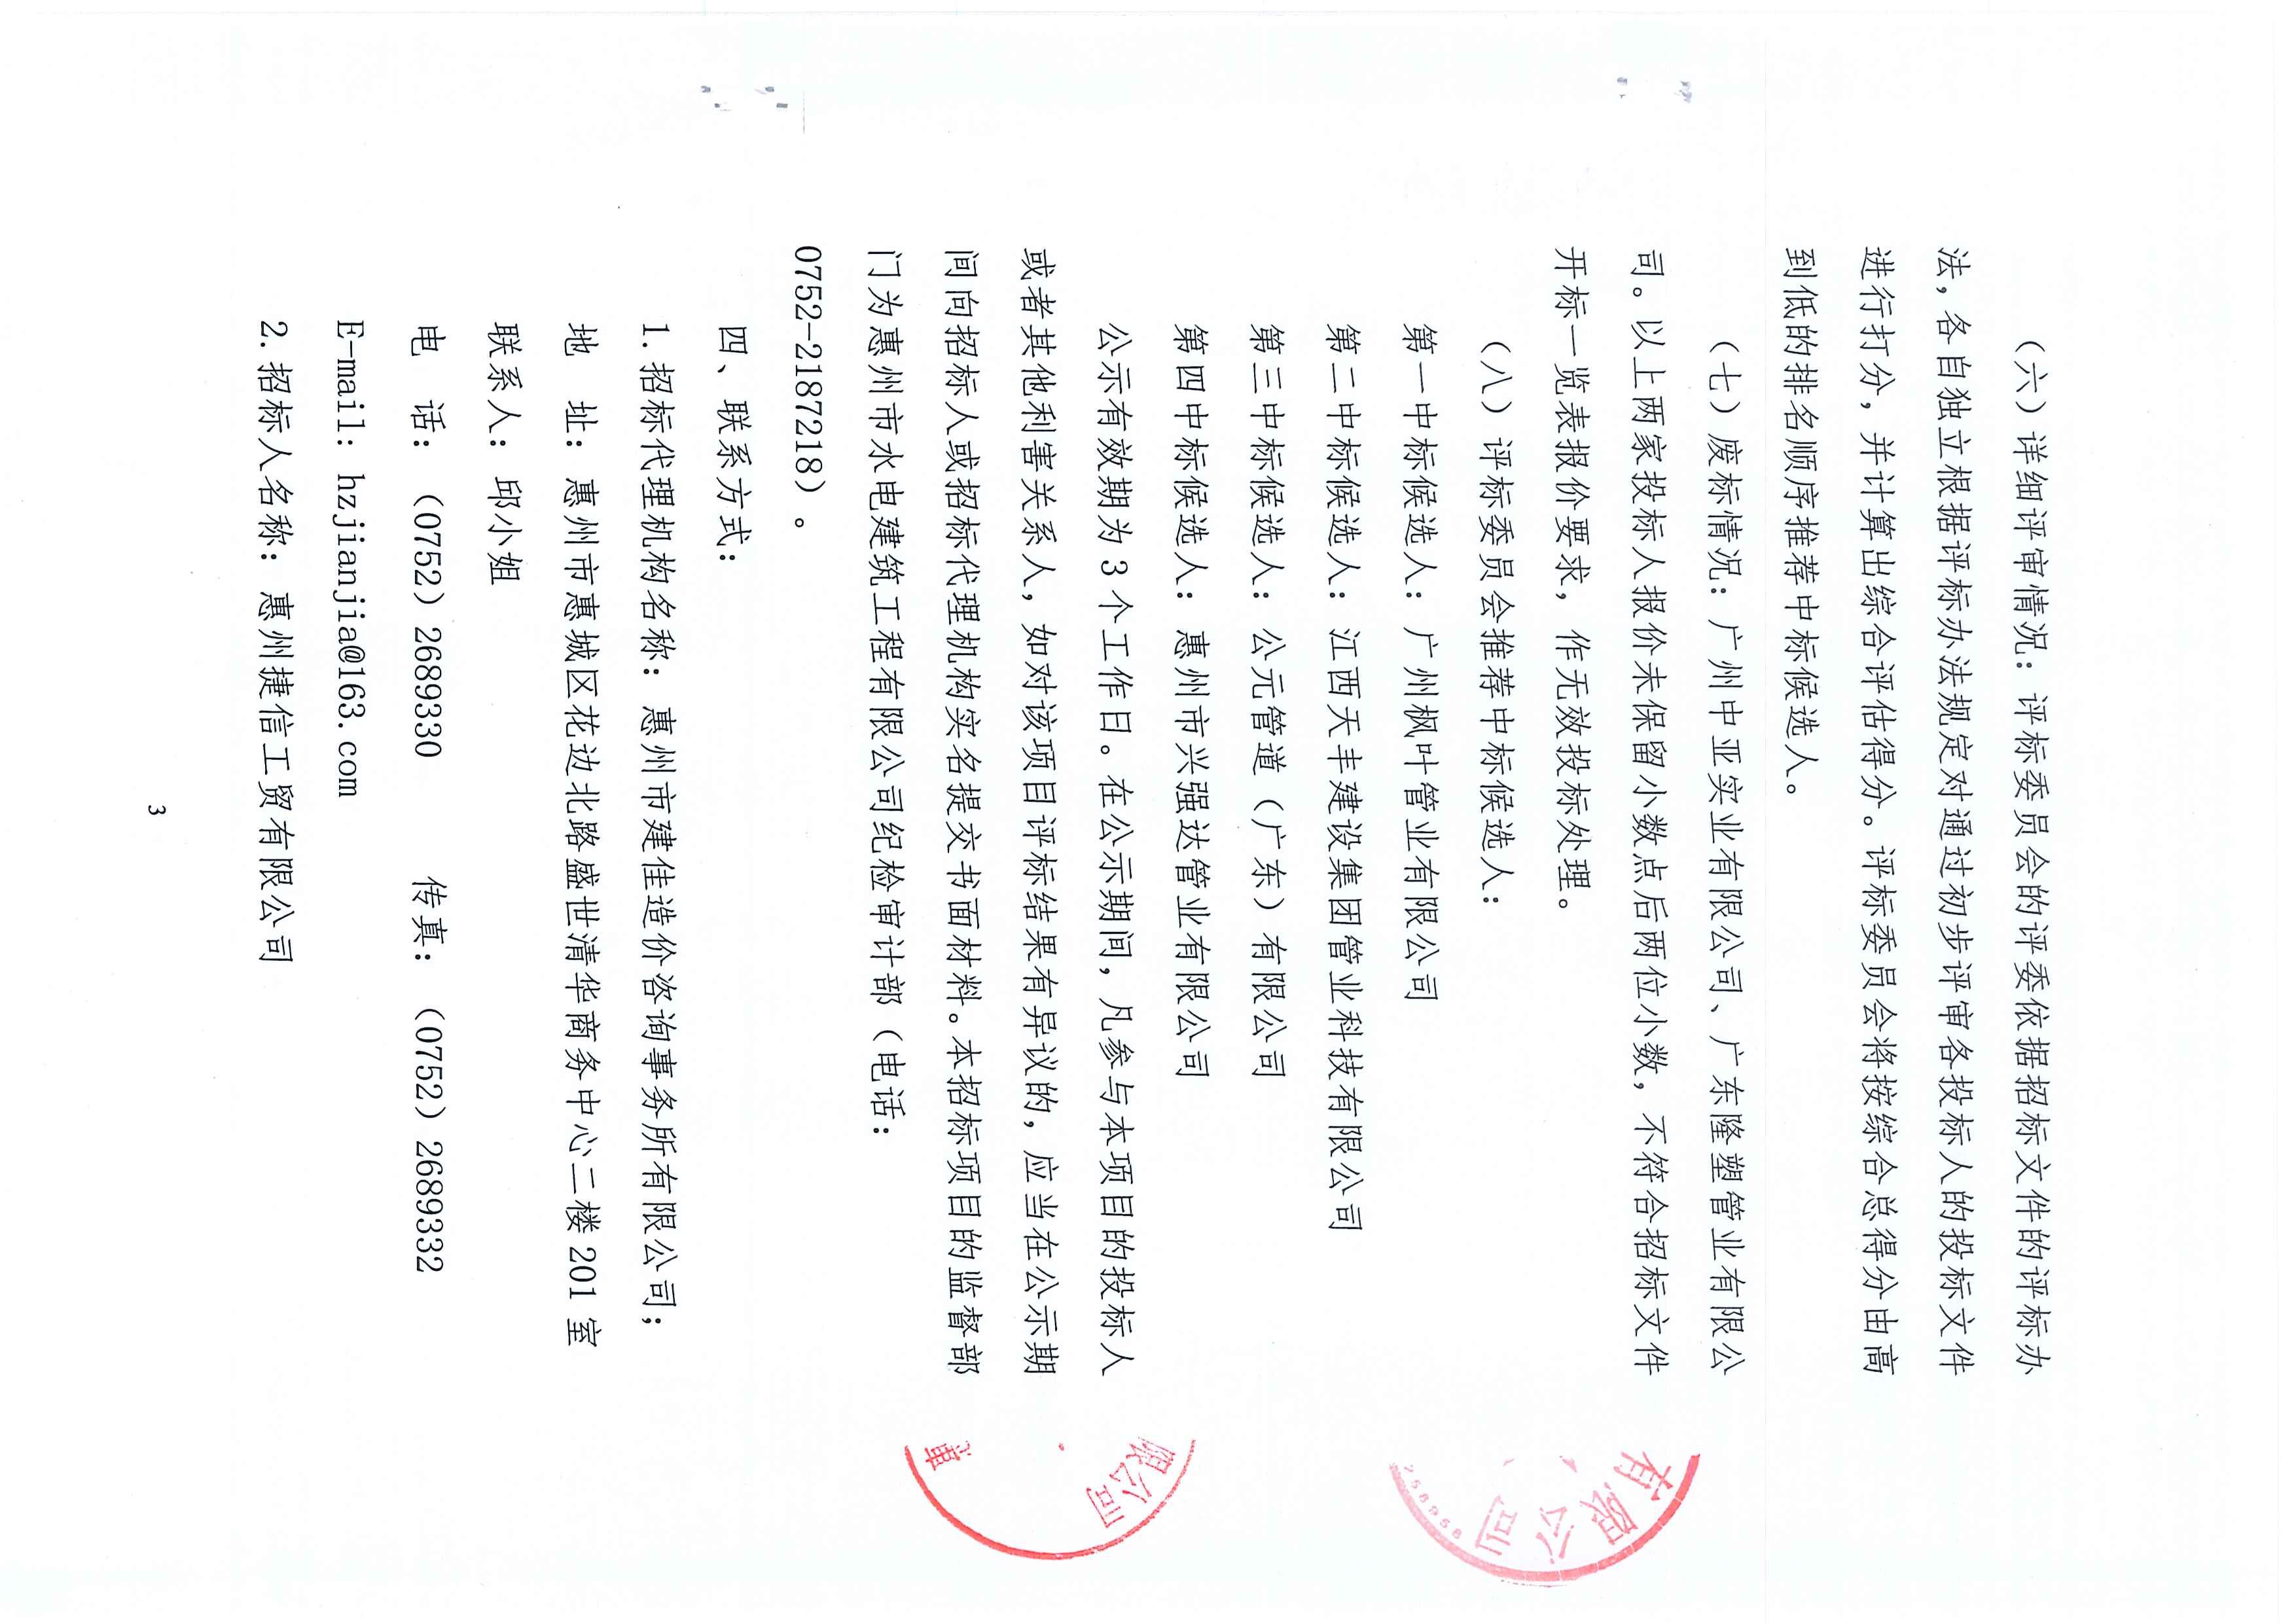 （六）详细评审情况：评标委员会的评委依据招标文件的评标办
法，各自独立根据评标办法规定对通过初步评审各投标人的投标文件
进行打分，并计算出综合评估得分。评标委员会将按综合总得分由高
到低的排名顺序推荐中标候选人。
（七）废标情况：广州中亚实业有限公司、广东隆塑管业有限公
司。以上两家投标人报价未保留小数点后两位小数，不符合招标文件
开标一览表报价要求，作无效投标处理。
（八）评标委员会推荐中标候选人：
第一中标候选人：广州枫叶管业有限公司
第二中标候选人：江西天丰建设集团管业科技有限公司
第三中标候选人：公元管道（广东）有限公司
第四中标候选人：惠州市兴强达管业有限公司
公示有效期为 3 个工作日。在公示期间，凡参与本项目的投标人
或者其他利害关系人，如对该项目评标结果有异议的，应当在公示期
间向招标人或招标代理机构实名提交书面材料。本招标项目的监督部
门为惠州市水电建筑工程有限公司纪检审计部（电话：
0752-2187218）。
四、联系方式：
1. 招标代理机构名称：惠州市建佳造价咨询事务所有限公司；
地 址：惠州市惠城区花边北路盛世清华商务中心二楼 201 室
联系人：邱小姐
电 话：（0752）2689330 传真：（0752）2689332
E-mail：hzjianjia@163.com
2. 招标人名称：惠州捷信工贸有限公司
3
有限公司
限公司